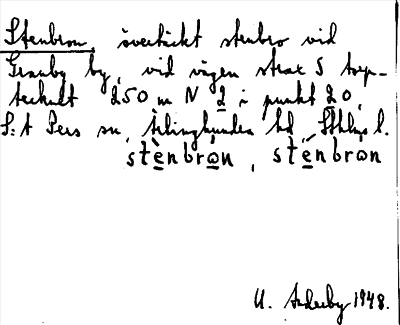 Stenbron, övertäckt stenbro vid
Granby by, vid vägen strax S torp-
tecknet 250 m N 2 i punkt 20,
S:t Pers sn, Ärlinghundra hd, Sthlms l.
stènbròn, sténbròn
U. 1948.